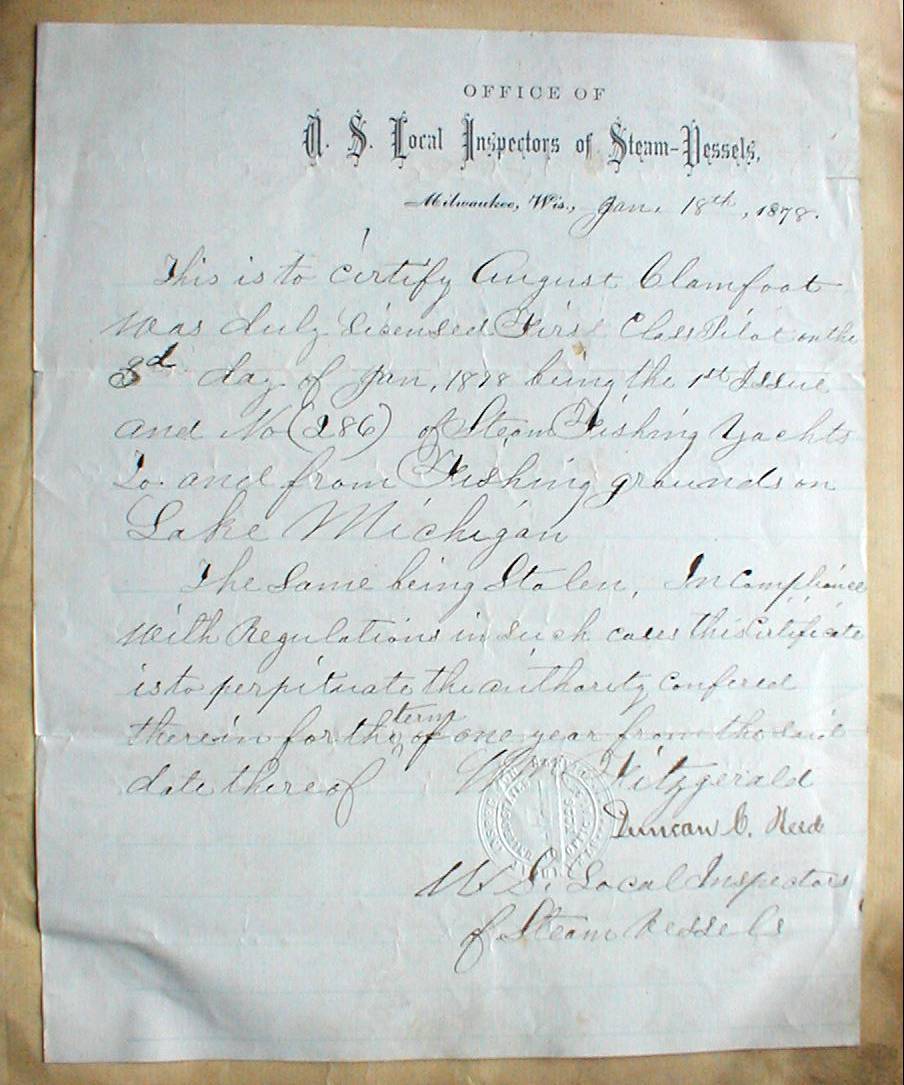 OFFICE OF
U. S. Local Inspectors of Steam-Vessels,
Milwaukee, Wis., Jan. 18th, 1878.
This is to certify August Clamfoot
was duly Licensed First Class Pilot on the
3d day of Jan, 1878 being the 1st Issue
and No (286) of Steam Fishing Yachts
To and from Fishing grounds on
Lake Michigan
The Same being Stolen, In Compliance
With Regulations in such cases this Certificate
is to perpituate the authority confered
therein for the term of one year from the said
date thereof Fitzgerald
Duncan C. Reed
U S. Local Inspectors
of Steam Vessels